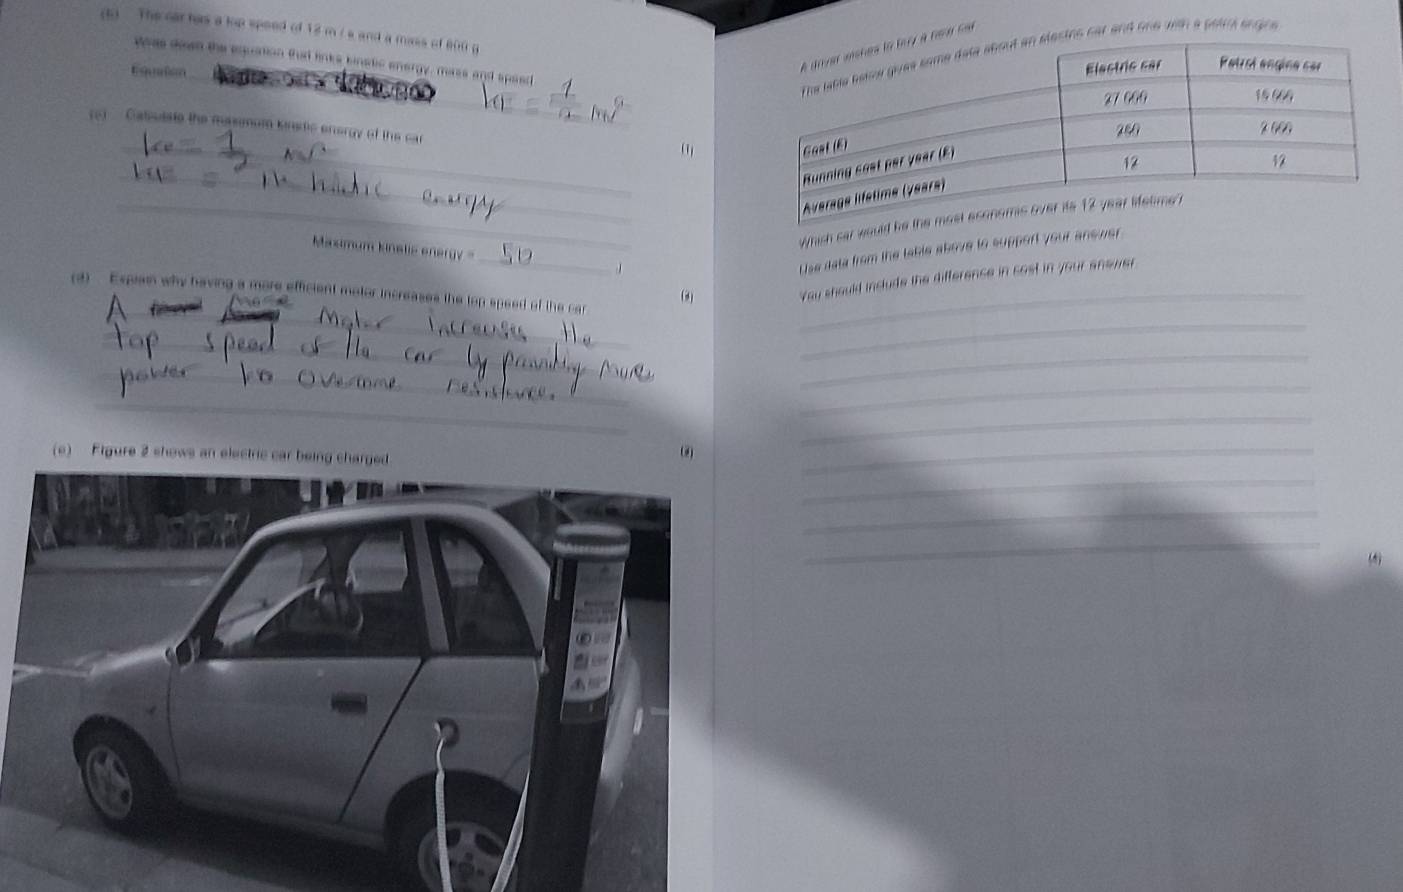 (b) The car has a top speed of 12 m / s and a mass of 800 g
Write down the equation that links kinetic energy, mass and speed
Equation
KE = 1/2 mv²
(1)
(c) Calculate the maximum kinetic energy of the car
Ke = 1/2 mv²
KE = kinetic energy
Maximum kinetic energy = 50 J
(2)
(d) Explain why having a more efficient motor increases the top speed of the car
A more Motor increases the
top speed of the car by providing more
power to overcome resistance.
(2)
(e) Figure 2 shows an electric car being charged
A driver wishes to buy a new car
The table below gives some data about an electric car and one with a petrol engine
Electric car Petrol engine car
Cost (£) 27 000 15 000
Running cost per year (£) 260 2 000
Average lifetime (years) 12 12
Which car would be the most economic over its 12 year lifetime?
Use data from the table above to support your answer.
You should include the difference in cost in your answer.
(4)